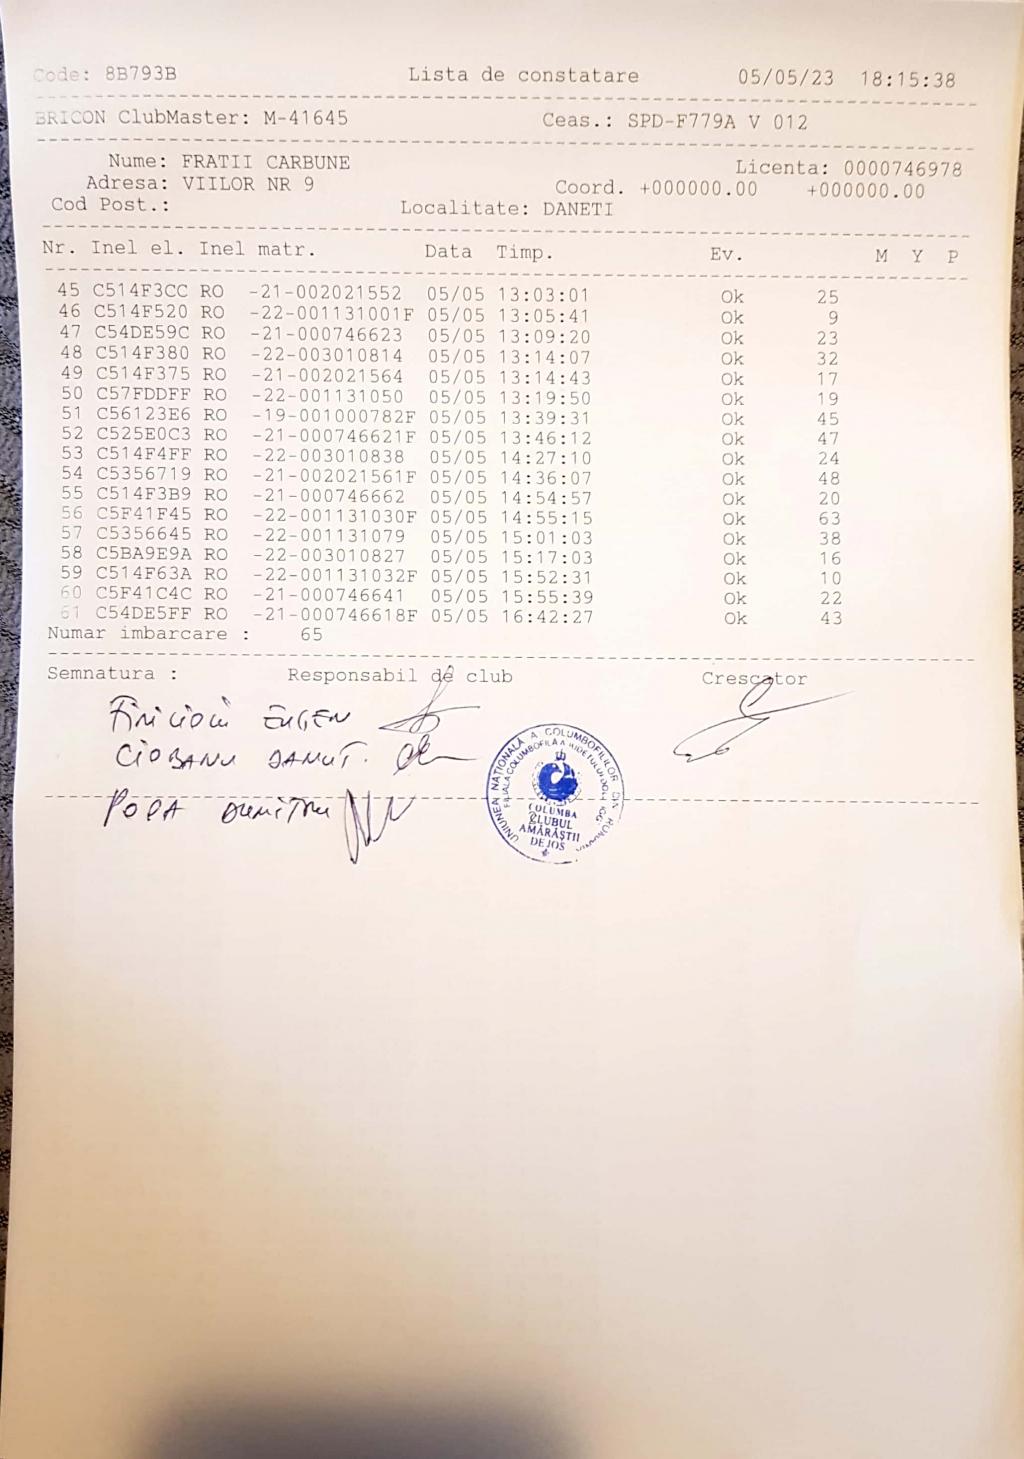 Code: 8B793B Lista de constatare 05/05/23 18:15:38
BRICON ClubMaster: M-41645 Ceas.: SPD-F779A V 012
Nume: FRATII CARBUNE Licenta: 0000746978
Adresa: VIILOR NR 9 Coord. +000000.00 +000000.00
Cod Post.: Localitate: DANETI
Nr. Inel el. Inel matr. Data Timp. Ev. M Y P
45 C514F3CC RO -21-002021552 05/05 13:03:01 Ok 25
46 C514F520 RO -22-001131001F 05/05 13:05:41 Ok 9
47 C54DE59C RO -21-000746623 05/05 13:09:20 Ok 23
48 C514F380 RO -22-003010814 05/05 13:14:07 Ok 32
49 C514F375 RO -21-002021564 05/05 13:14:43 Ok 17
50 C57FDDFF RO -22-001131050 05/05 13:19:50 Ok 19
51 C56123E6 RO -19-001000782F 05/05 13:39:31 Ok 45
52 C525E0C3 RO -21-000746621F 05/05 13:46:12 Ok 47
53 C514F4FF RO -22-003010838 05/05 14:27:10 Ok 24
54 C5356719 RO -21-002021561F 05/05 14:36:07 Ok 48
55 C514F3B9 RO -21-000746662 05/05 14:54:57 Ok 20
56 C5F41F45 RO -22-001131030F 05/05 14:55:15 Ok 63
57 C5356645 RO -22-001131079 05/05 15:01:03 Ok 38
58 C5BA9E9A RO -22-003010827 05/05 15:17:03 Ok 16
59 C514F63A RO -22-001131032F 05/05 15:52:31 Ok 10
60 C5F41C4C RO -21-000746641 05/05 15:55:39 Ok 22
61 C54DE5FF RO -21-000746618F 05/05 16:42:27 Ok 43
Numar imbarcare : 65
Semnatura : Responsabil de club Crescator
EUGEN
CIOBANU DANUT.
POPA DUMITRU
UNIUNEA NAȚIONALĂ A COLUMBOFILILOR DIN ROMÂNIA
FILIALA COLUMBOFILĂ A JUDEȚULUI DOLJ
COLUMBA
CLUBUL
AMĂRĂȘTII
DE JOS